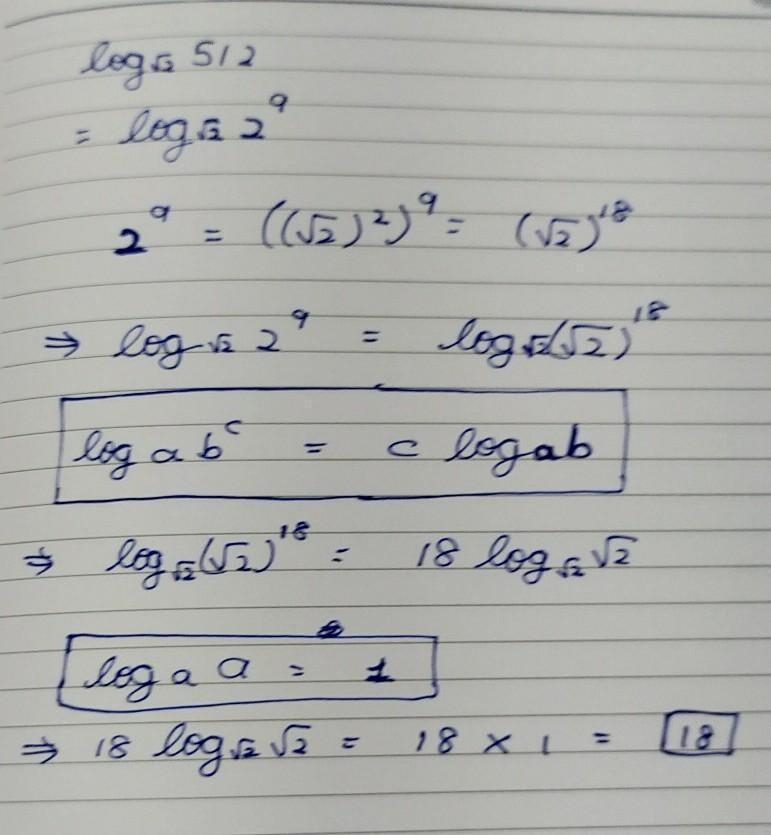 log√2 512
= log√2 2⁹
2⁹ = ((√2)²)⁹ = (√2)¹⁸
⇒ log√2 2⁹ = log√2(√2)¹⁸
log a bᶜ = c log a b
⇒ log√2(√2)¹⁸ = 18 log√2 √2
log a a = 1
⇒ 18 log√2 √2 = 18 × 1 = 18